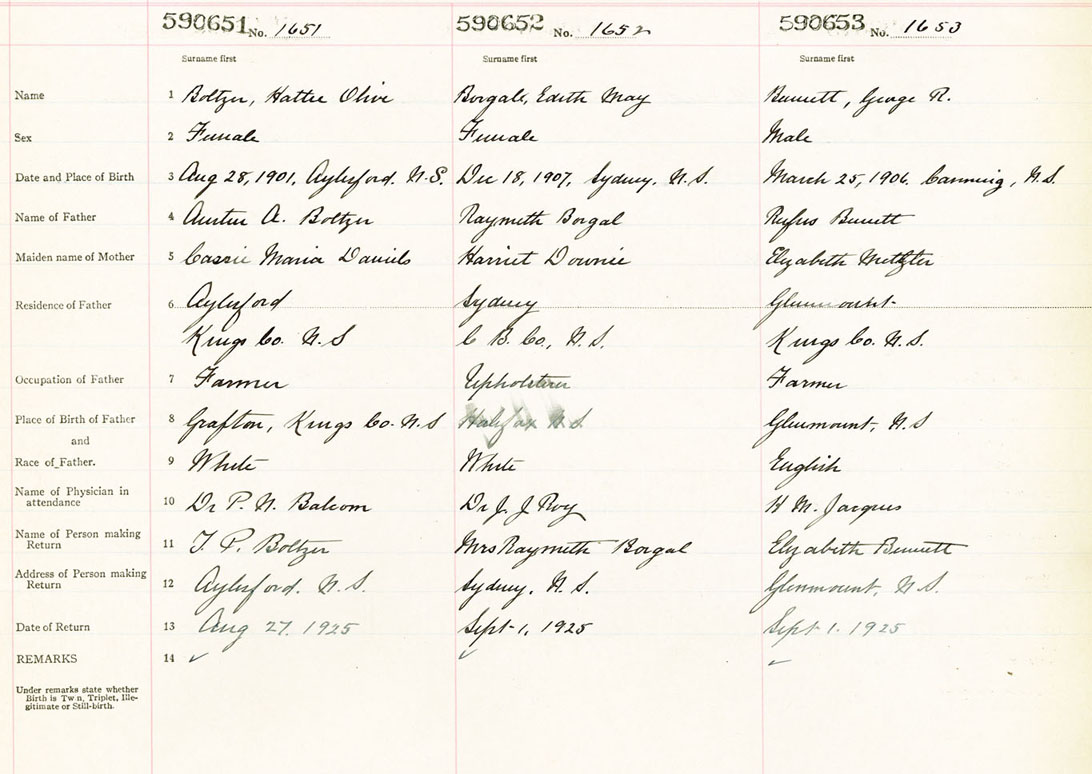 590651 No. 1651 590652 No. 1652 590653 No. 1653
Surname first Surname first Surname first
Name 1 Boltzer, Hattie Olive Borgal, Edith May Bennett, George R.
Sex 2 Female Female Male
Date and Place of Birth 3 Aug 28, 1901, Aylesford. N.S. Dec 18, 1907, Sydney, N.S. March 25, 1906. Canning, N.S.
Name of Father 4 Austin A. Boltzer Raymeth Borgal Rufus Bennett
Maiden name of Mother 5 Cassie Maria Daniels Harriet Downie Elizabeth Metzler
Residence of Father 6 Aylesford Sydney Glenmount
Kings Co. N.S C B. Co., N.S. Kings Co. N.S.
Occupation of Father 7 Farmer Upholsterer Farmer
Place of Birth of Father 8 Grafton, Kings Co. N.S Halifax N.S Glenmount, N.S
and
Race of Father. 9 White White English
Name of Physician in
attendance 10 Dr P. N. Balcom Dr J. J Roy H M. Jacques
Name of Person making
Return 11 T. P. Boltzer Mrs Raymeth Borgal Elizabeth Bennett
Address of Person making
Return 12 Aylesford. N.S. Sydney, N.S. Glenmount, N.S.
Date of Return 13 Aug 27. 1925 Sept 1, 1925 Sept 1. 1925
REMARKS 14
Under remarks state whether
Birth is Twin, Triplet, Ille-
gitimate or Still-birth.